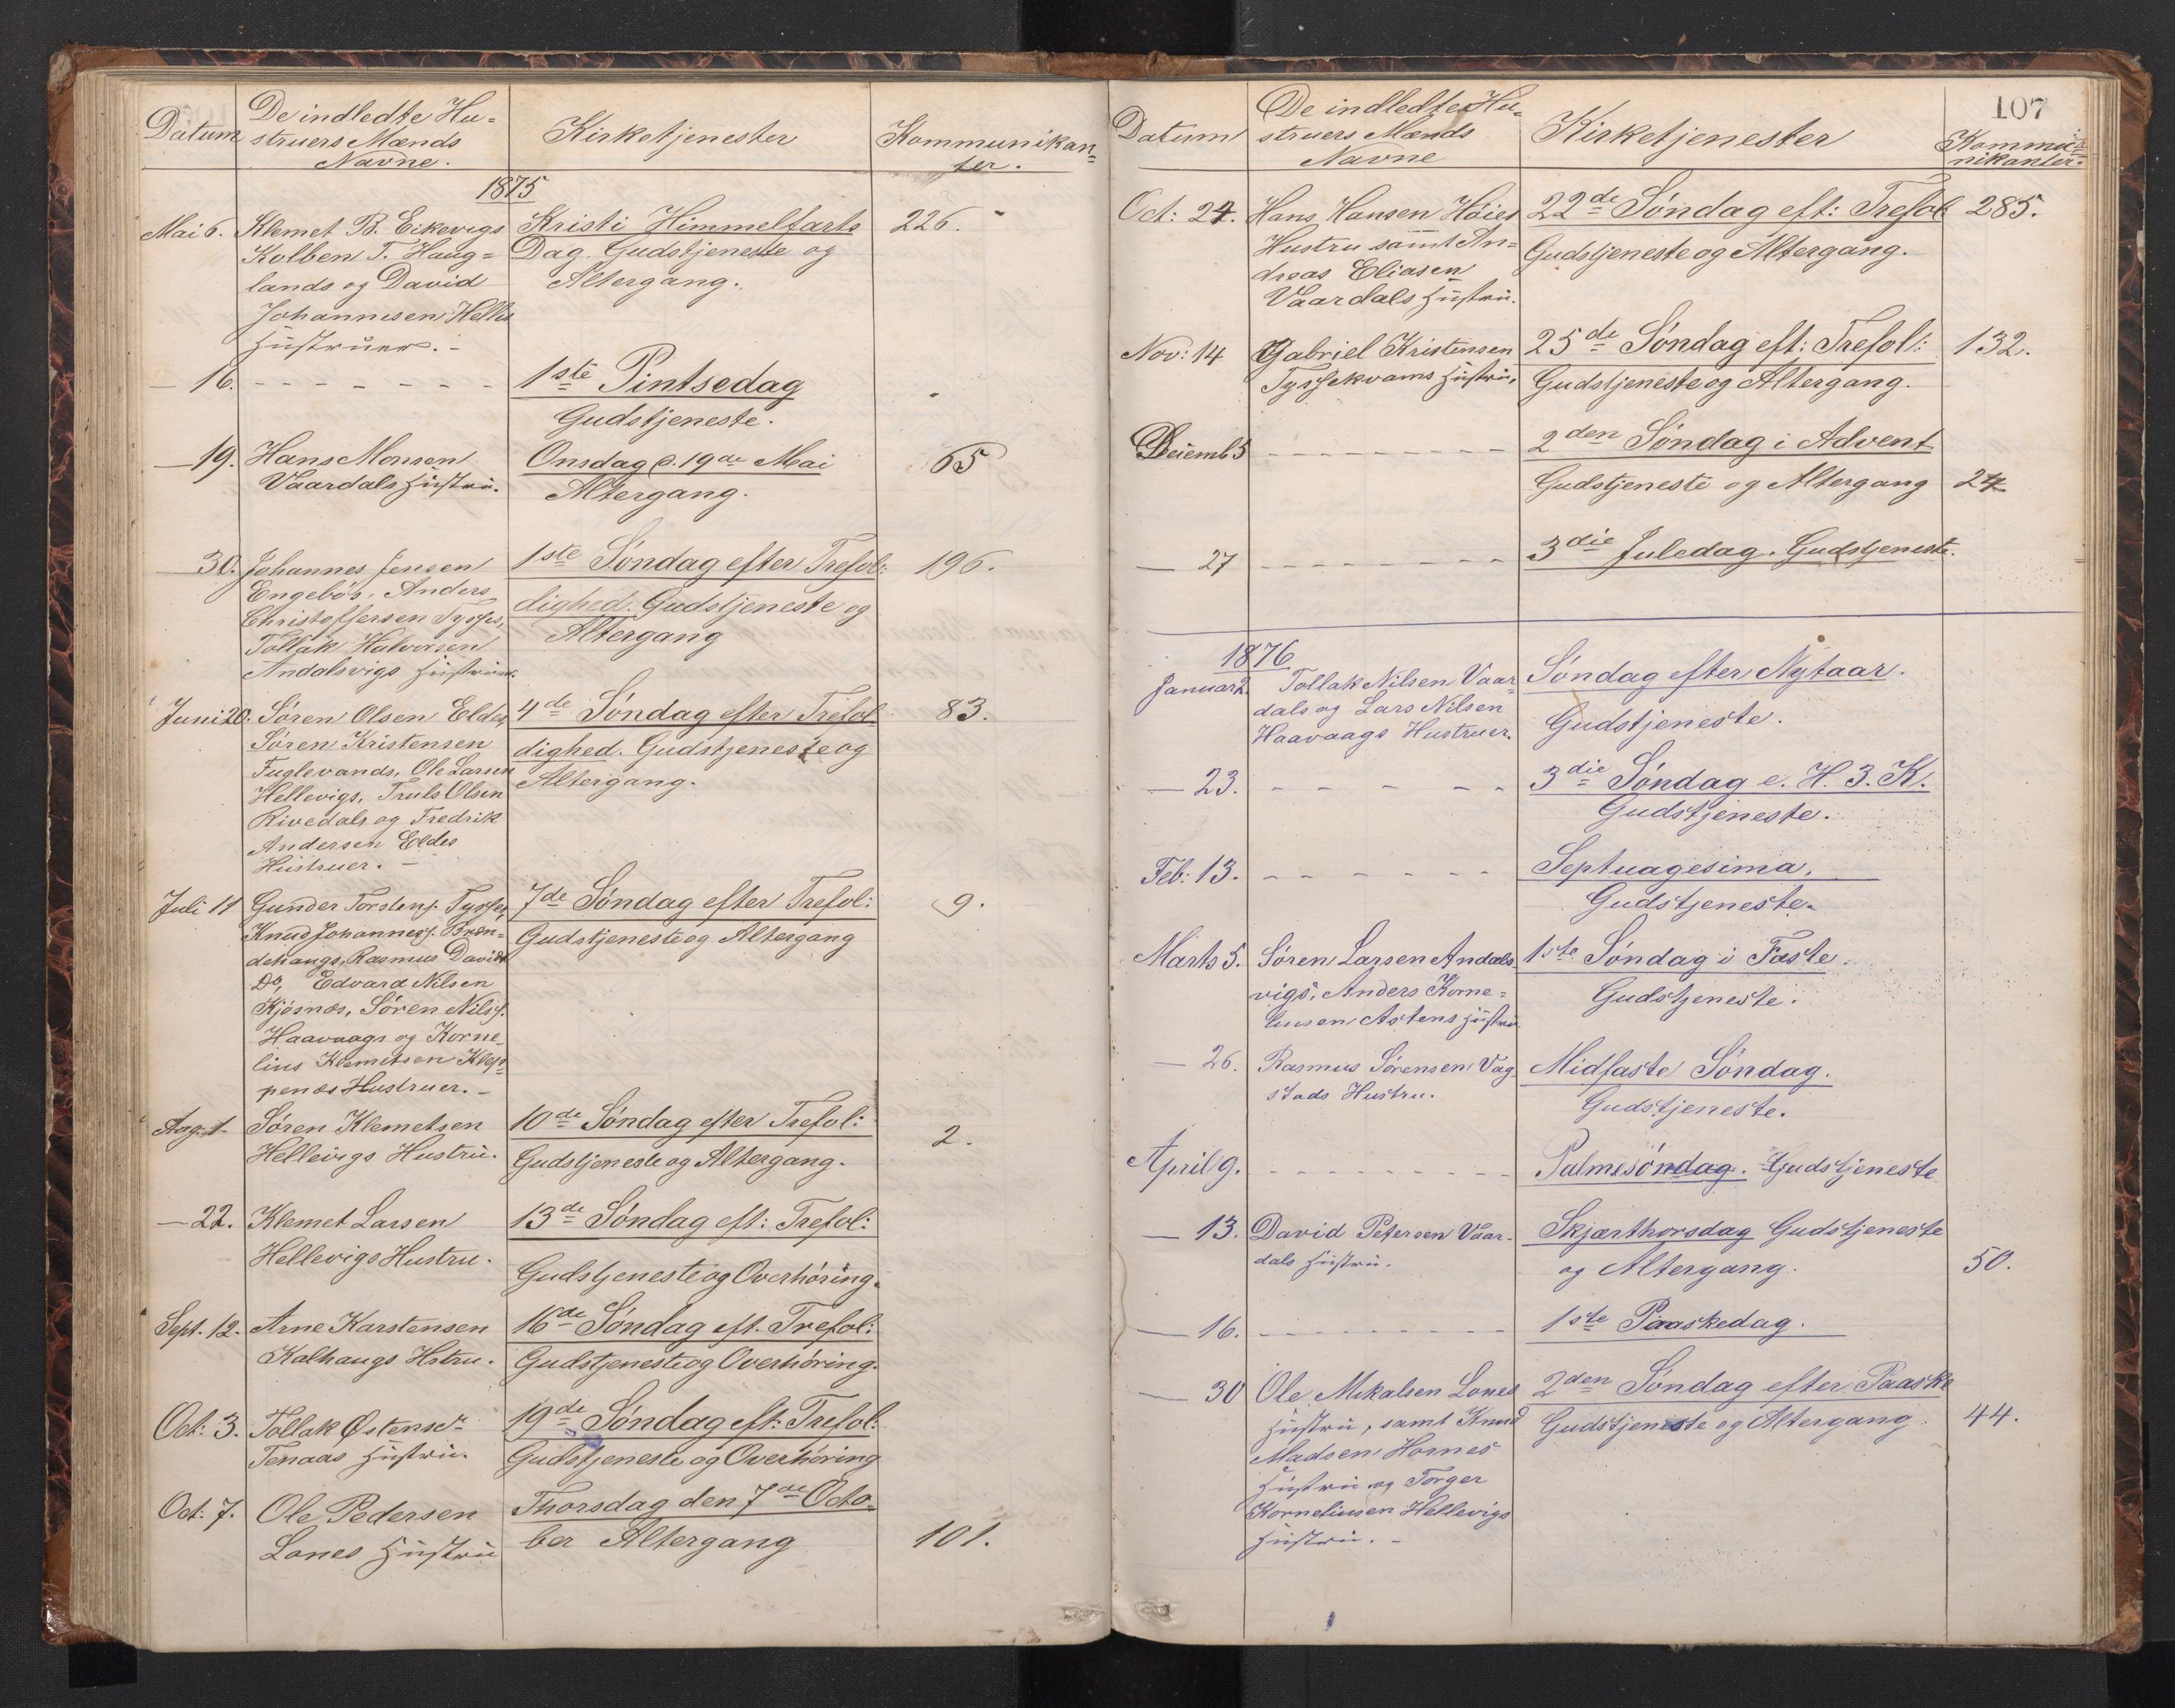 Datum
De indledte Hu-
struers Mænds
Navne.
Kirketjenester
Kommunikan-
ter.
1875
Mai 6.
Klemet B. Eikevigs
Kolben T. Haug-
lands og David
Johannesen Helles
Hustruer. -
Kristi Himmelfarts
Dag. Gudstjeneste og
Altergang.
226.
— 16.
1ste Pintsedag
Gudstjeneste.
— 19.
Hans Monsen
Vaardals Hustru.
Onsdag d. 19de Mai
Altergang.
65
— 30.
Johannes Jensen
Engebøs, Anders
Christoffersen Tysses,
Tollak Halvorsen
Andalsvigs Hustruer.
1ste Søndag efter Trefol:
dighed. Gudstjeneste og
Altergang
196.
Juni 20.
Søren Olsen Eldes,
Søren Kristensen
Fuglevands, Ole Larsen
Hellevigs, Truls Olsen
Rivedals og Fredrik
Andersen Eldes
Hustruer. -
4de Søndag efter Trefol
dighed. Gudstjeneste og
Altergang.
83.
Juli 11
Gunder Torstens. Tysses,
Knud Johanness. Bren-
dehaugs, Rasmus Davids
Do, Edvard Nilsen
Kjøsnæs, Søren Nilss.
Haavaags og Korne-
lius Klemetsen Klep-
penæs Hustruer. -
7de Søndag efter Trefol:
Gudstjeneste og Altergang
9.
Aug. 1
Søren Klemetsen
Hellevigs Hustru.
10de Søndag efter Trefol:
Gudstjeneste og Altergang.
2.
— 22.
Klemet Larsen
Hellevigs Hustru.
13de Søndag eft: Trefol:
Gudstjeneste og Overhøring.
Sept. 12.
Arne Karstensen
Kalhaugs Hstru.
16de Søndag eft. Trefol:
Gudstjeneste og Overhøring.
Oct: 3.
Tollak Østensen
Tenaas Hustru.
19de Søndag eft: Trefol:
Gudstjeneste og Overhøring
Oct: 7.
Ole Pedersen
Lones Hustru
Thorsdag den 7de Octo-
ber Altergang
101.
107
Datum
De indledte Hu-
struers Mænds
Navne
Kirketjenester
Kommu-
nikanter.
Oct: 24.
Hans Hansen Høies
Hustru samt An-
dreas Eliasen
Vaardals Hustru.
22de Søndag eft: Trefol
Gudstjeneste og Altergang.
285.
Nov: 14
Gabriel Kristensen
Tyssekvams Hustru,
25de Søndag eft: Trefol:
Gudstjeneste og Altergang.
132.
Decemb 5
2den Søndag i Advent
Gudstjeneste og Altergang
24
— 27
3die Juledag. Gudstjeneste.
1876
Januar 2.
Tollak Nilsen Vaar-
dals og Lars Nilsen
Haavaags Hustruer.
Søndag efter Nytaar.
Gudstjeneste.
— 23.
3die Søndag e. H. 3. K.
Gudstjeneste.
Feb: 13.
Septuagesima.
Gudstjeneste.
Marts 5.
Søren Larsen Andals-
vigs, Anders Korne-
liusen Astens Hustru
1ste Søndag i Faste.
Gudstjeneste.
— 26.
Rasmus Sørensen Vag-
stads Hustru.
Midfaste Søndag.
Gudstjeneste.
April 9.
Palmesøndag. Gudstjeneste
— 13.
David Petersen Vaar-
dals Hustru.
Skjærthorsdag Gudstjeneste
og Altergang.
50.
— 16.
1ste Paaskedag.
— 30
Ole Mikalsen Lones
Hustru, samt Knud
Madsen Hornes
Hustru og Torger
Korneliusen Hellevigs
Hustru. -
2den Søndag efter Paaske
Gudstjeneste og Altergang.
44.